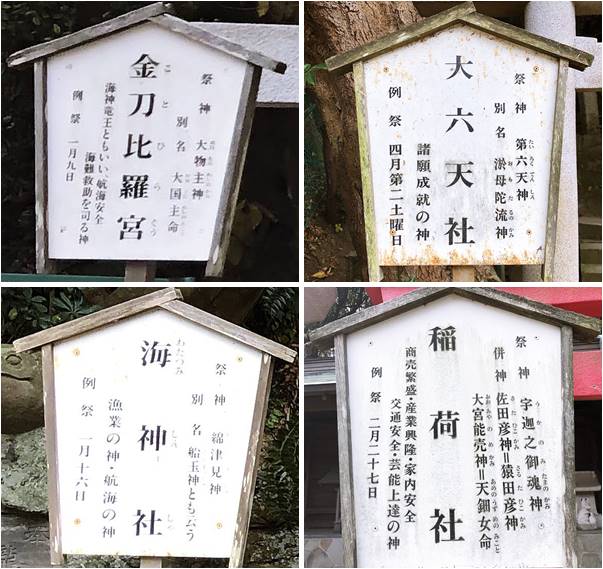 祭神 大物主神
別名 大国主命
金刀比羅宮
ことひらぐう
海神竜王ともいい、航海安全
海難救助を司る神
例祭 一月九日
祭神 第六天神
別名 淤母陀流神
おもだるのかみ
大六天社
諸願成就の神
例祭 四月第二土曜日
祭神 綿津見神
別名 船玉神とも云う
海神社
わたつみ
漁業の神・航海の神
例祭 一月十六日
祭神 宇迦之御魂神
うかのみたまのかみ
併神 佐田彦神=猿田彦神
大宮能売神=天鈿女命
稲荷社
商売繁盛・産業興隆・家内安全
交通安全・芸能上達の神
例祭 二月二十七日